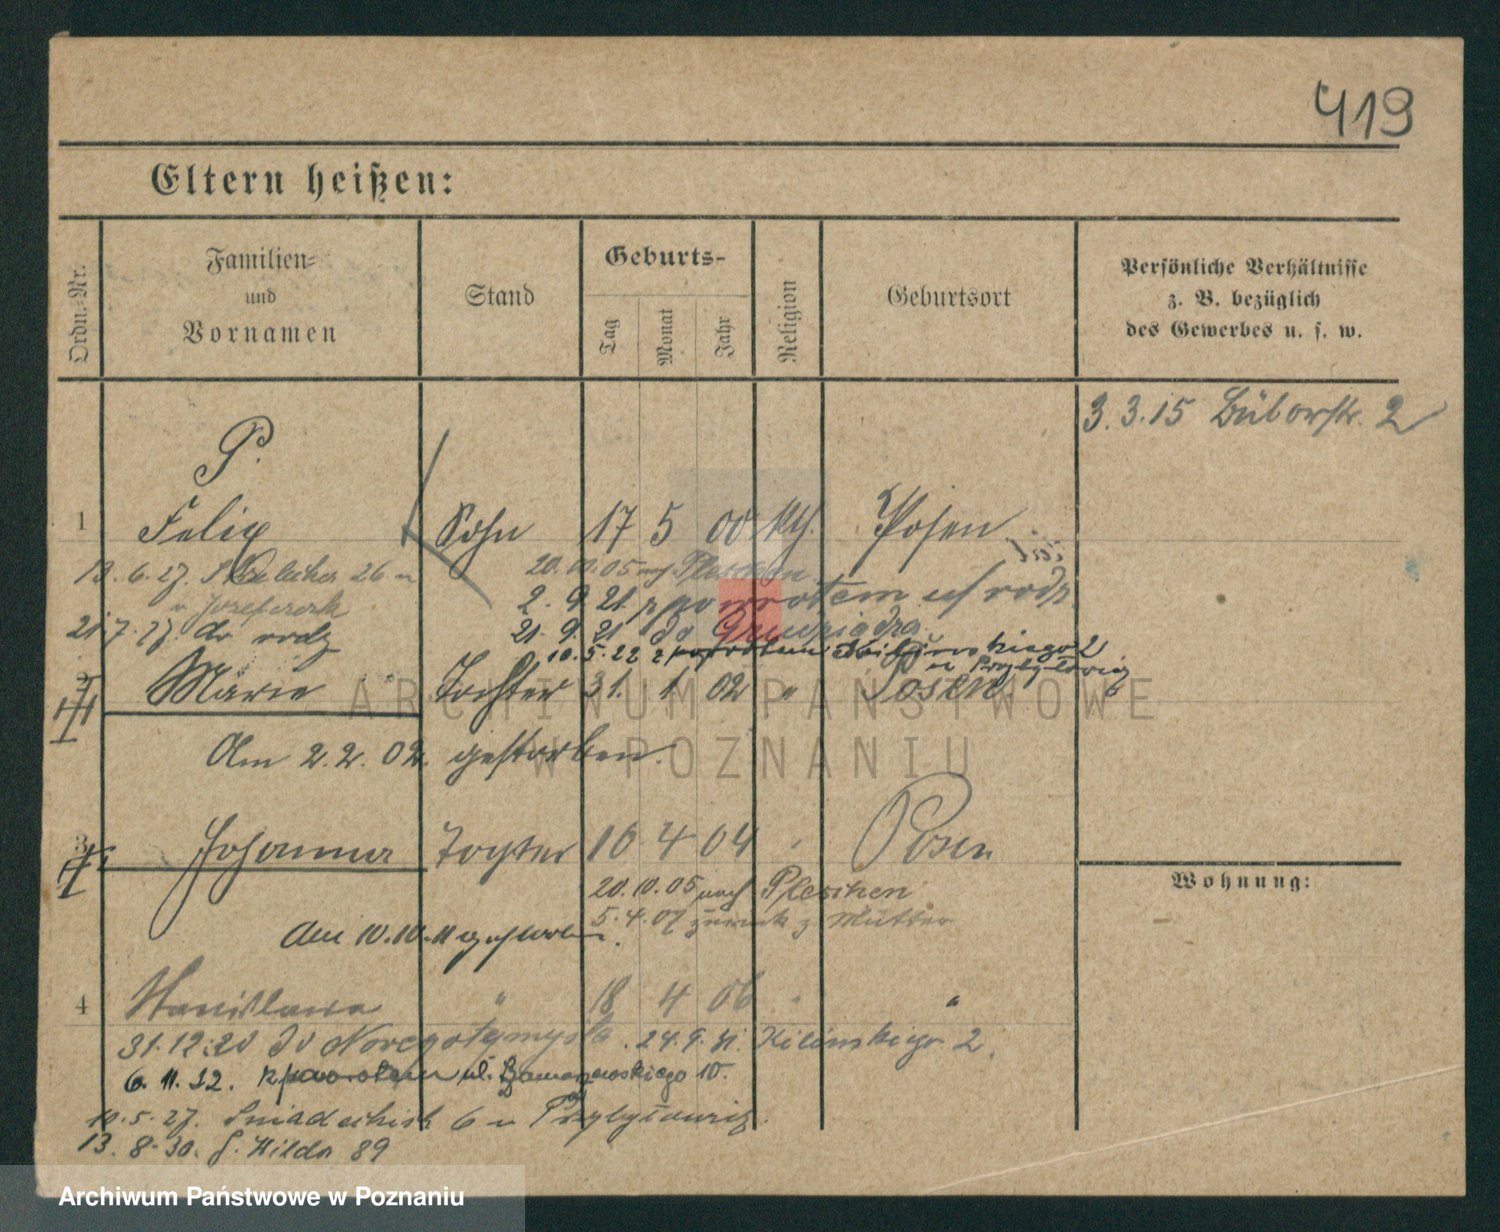 419
Eltern heißen:
Ordn.-Nr.
Familien- und Vornamen
Stand
Geburts-
Tag
Monat
Jahr
Religion
Geburtsort
Persönliche Verhältnisse z. B. bezüglich des Gewerbes u. s. w.
3.3.15 2
P.
1 Felix Sohn 17 5 00 kth. Posen
20.10.05 nach Pleschen
13.6.27. 26
2.9.21 z powrotem
21.9.21 do Grudziądza
21.7.27. do rodz
10.5.22 z powrotem 2
2 Marie Tochter 31. 1 02 " Posen
Am 2.2.02. gestorben.
3 Johanna Tochter 16 4 04 " Posen
20.10.05 nach Pleschen
5.4.07 zurück z Mutter
Am 10.10.11 gestorben.
Wohnung:
4 Stanislawa " 18 4 06 " "
31.12.20 do Nowegotymyśla. 24.9.21. Kilinskiego 2.
6.11.22. z powrotem ul. 10.
10.5.27. Sniadeckich 6 u Przybyłowicz.
13.8.30. G. Wilda 89
ARCHIWUM PAŃSTWOWE
W POZNANIU
Archiwum Państwowe w Poznaniu